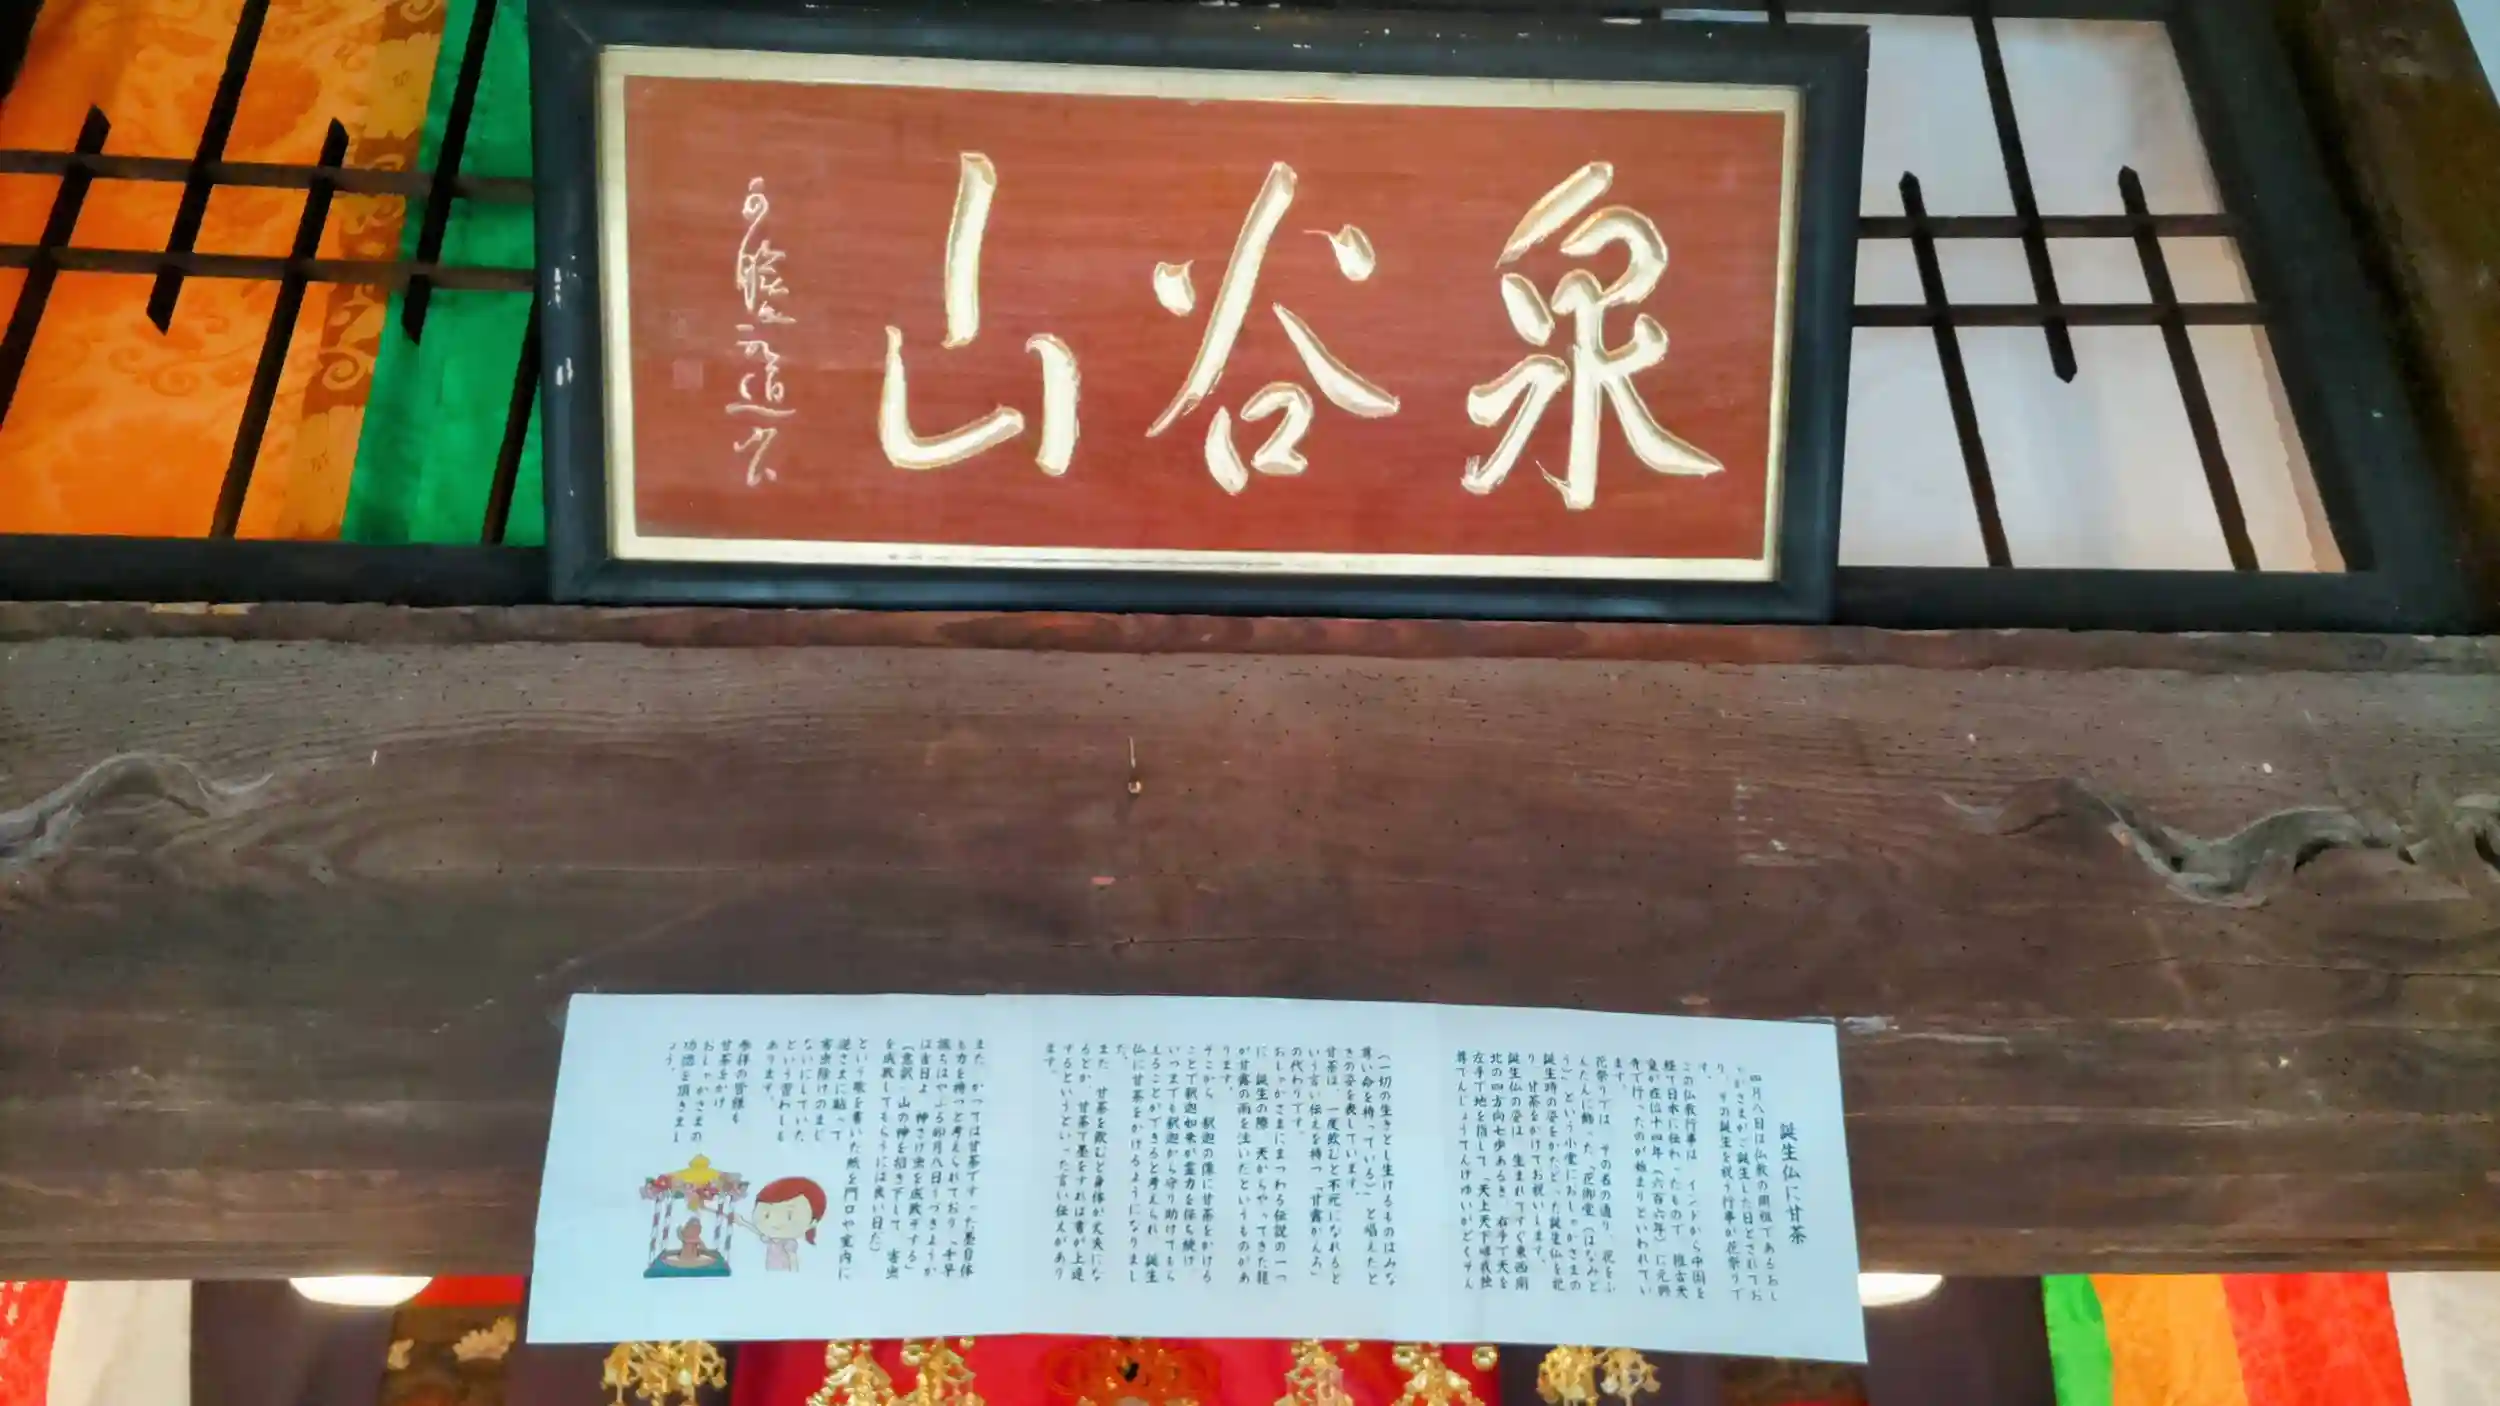 泉谷山
誕生仏に甘茶
四月八日は仏教の開祖であるおし
ゃかさまがご誕生した日とされてお
り、その誕生を祝う行事が花祭りで
す。
この仏教行事は、インドから中国を
経て日本に伝わったもので、推古天
皇が在位十四年（六百六年）に元興
寺で行ったのが始まりといわれてい
ます。
花祭りでは、その名の通り、花をふ
んだんに飾った「花御堂（はなみど
う）」という小堂におしゃかさまの
誕生時の姿をかたどった誕生仏を祀
り、甘茶をかけてお祝いします。
誕生仏の姿は、生まれてすぐ東西南
北の四方向七歩あるき、右手で天を
左手で地を指して「天上天下唯我独
尊てんじょうてんげゆいがどくそん
（一切の生きとし生けるものはみな
尊い命を持っている）」と唱えたと
きの姿を表しています。
甘茶は、一度飲むと不死になれると
いう言い伝えを持つ「甘露かんろ」
の代わりです。
おしゃかさまにまつわる伝説の一つ
に、誕生の際、天からやってきた龍
が甘露の雨を注いだというものがあ
ります。
そこから、釈迦の像に甘茶をかける
ことで釈迦如来が霊力を保ち続け、
いつまでも釈迦から守り助けてもら
えることができると考えられ、誕生
仏に甘茶をかけるようになりまし
た。
また、甘茶を飲むと身体が丈夫にな
るとか、甘茶で墨をすれば書が上達
するというといった言い伝えがあり
ます。
また、かつては甘茶ですった墨自体
も力を持つと考えられており、「千早
振ちはやふる卯月八日うづきようか
は吉日よ 神さけ虫を成敗ぞする」
（意訳：山の神を招き下して、害虫
を成敗してもらうには良い日だ）
という歌を書いた紙を門口や室内に
逆さまに貼って
害虫除けのまじ
ないにしていた
という習わしも
あります。
参拝の皆様も
甘茶をかけ
おしゃかさまの
功徳を頂きまし
ょう。